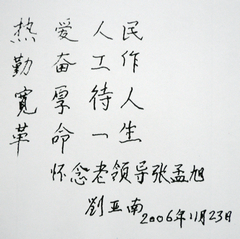 热爱人民
勤奋工作
宽厚待人
革命一生
怀念老领导张孟旭
劉亚南
2006年11月23日